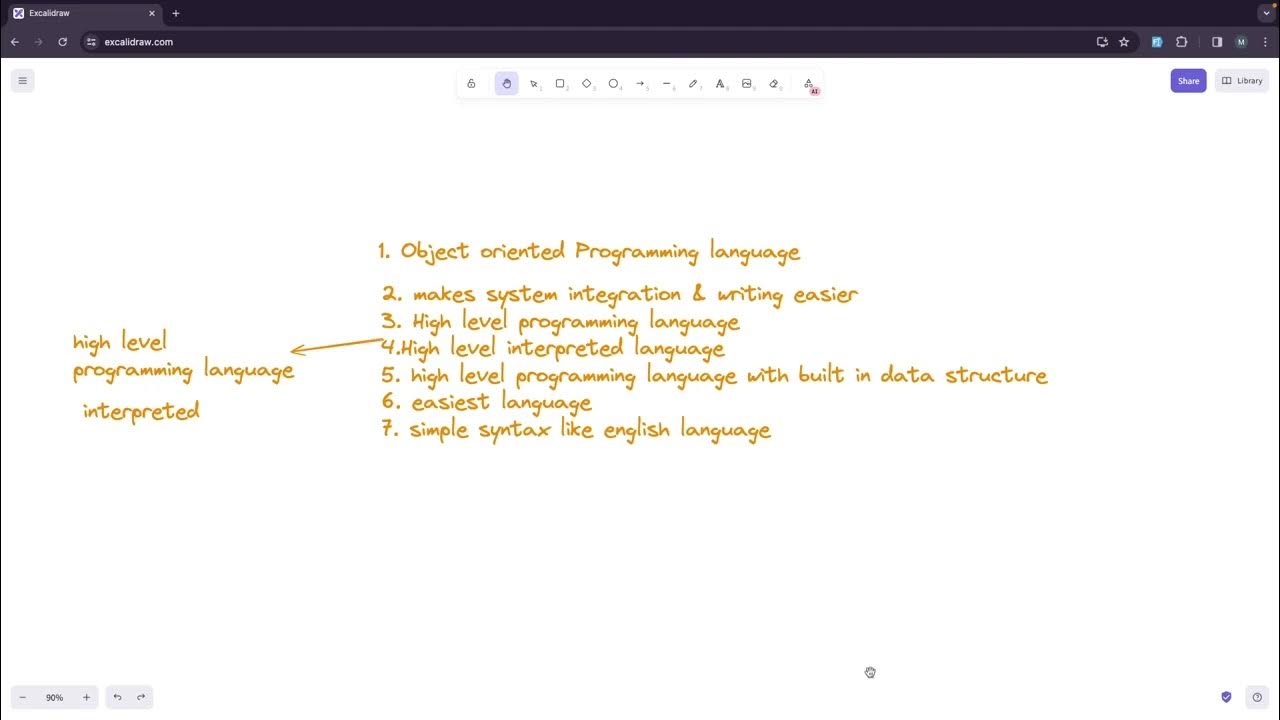 Excalidraw
excalidraw.com
M
1
2
3
4
5
6
7
8
9
0
AI
Share
Library
1. Object oriented Programming language
2. makes system integration & writing easier
3. High level programming language
4.High level interpreted language
5. high level programming language with built in data structure
6. easiest language
7. simple syntax like english language
high level
programming language
interpreted
90%